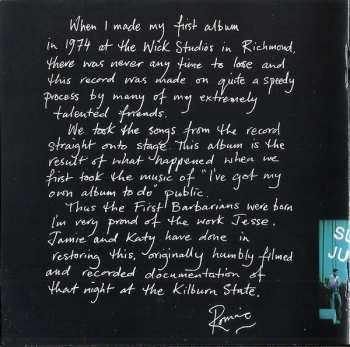 When I made my first album
in 1974 at the Wick Studios in Richmond,
there was never any time to lose and
this record was made on quite a speedy
process by many of my extremely
talented friends.
We took the songs from the record
straight onto stage. This album is the
result of what happened when we
first took the music of "I've got my
own album to do" public.
Thus the First Barbarians were born
I'm very proud of the work Jesse.
Jamie and Katy have done in
restoring this, originally humbly filmed
and recorded documentation of
that night at the Kilburn State.
Ronnie
SU
JU